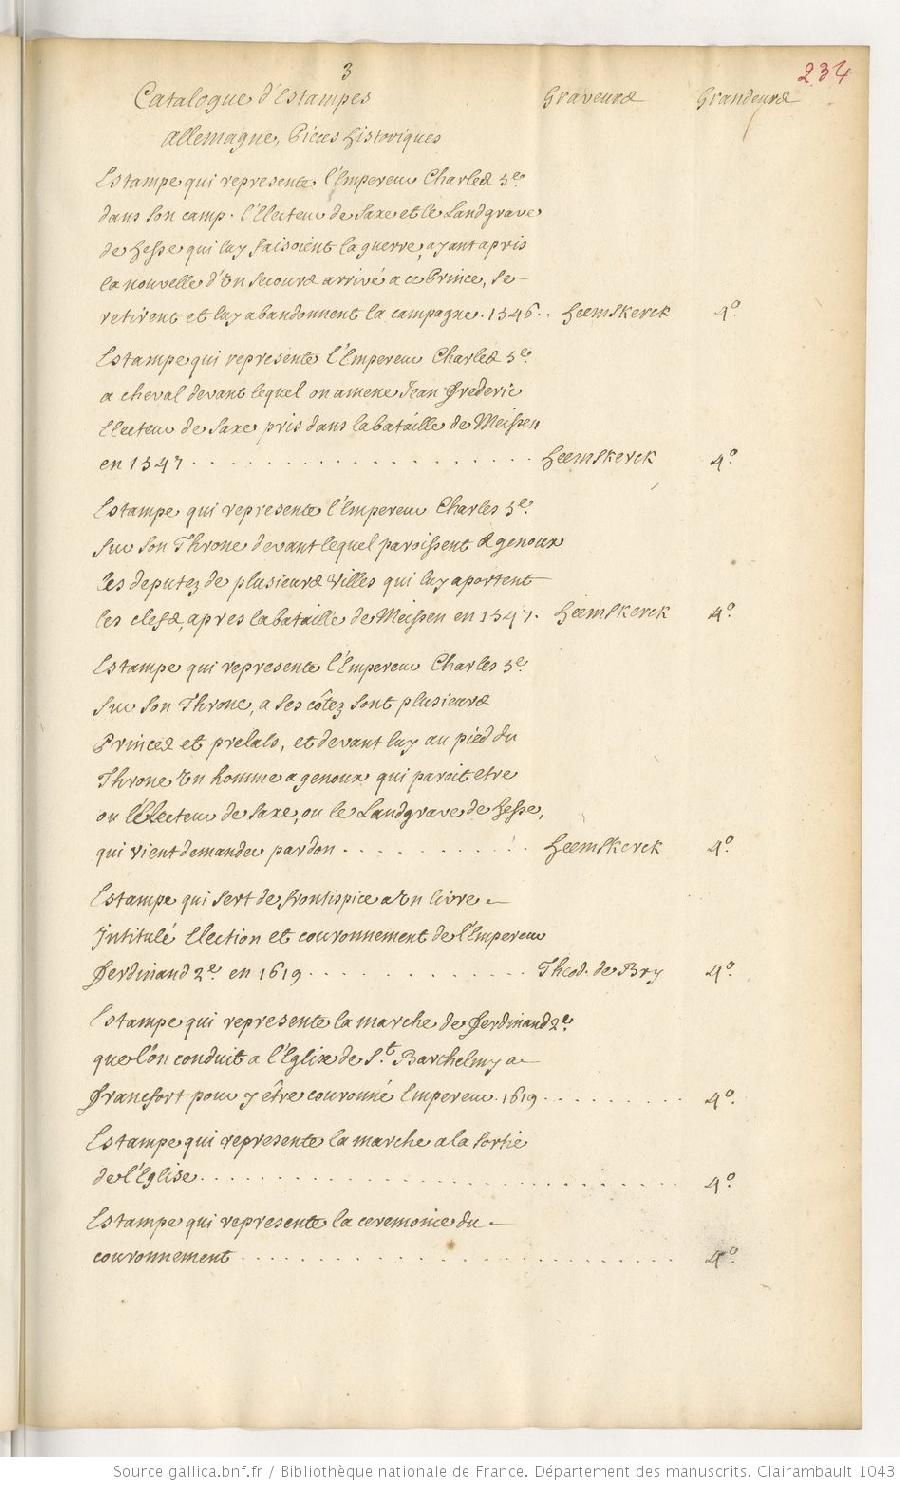 3
234
Catalogue d'Estampes Graveurs Grandeurs
Allemagne, Piéces Historiques
Estampe qui represente l'Empereur Charles 5e.
dans son camp. l'Electeur de Saxe et le Landgrave
de Hesse qui luy faisoient la guerre, ayant apris
la nouvelle d'un secours arrivé a ce Prince, se
retirent et luy abandonnent la campagne. 1546. Heemskerck 4o.
Estampe qui represente l'Empereur Charles 5e.
a cheval devant lequel on amene Jean Frederic
Electeur de Saxe pris dans la bataille de Meissen
en 1547 . . . . . . . . . . . . . . . . . . Heemskerck 4o.
Estampe qui represente l'Empereur Charles 5e.
sur son Throne devant lequel paroissent a genoux
les deputez de plusieurs villes qui luy aportent
les clefs, apres la bataille de Meissen en 1547. Heemskerck 4o.
Estampe qui represente l'Empereur Charles 5e.
sur son Throne, a ses côtez sont plusieurs
Princes et prelats, et devant luy au pied du
Throne un homme a genoux qui paroit etre
ou l'Electeur de Saxe, ou le Landgrave de Hesse,
qui vient demander pardon . . . . . . . . . Heemskerck 4o.
Estampe qui sert de frontispice a un livre
Intitulé Election et couronnement de l'Empereur
Ferdinand 2e. en 1619 . . . . . . . . . . . . Theod. de Bry 4o.
Estampe qui represente la marche de Ferdinand 2e.
que l'on conduit a l'Eglise de St. Barthelmy a
Francfort pour y être couronné Empereur. 1619 . . . . . . . . . 4o.
Estampe qui represente la marche a la sortie
de l'Eglise . . . . . . . . . . . . . . . . . . . . . . . . . . . . . 4o.
Estampe qui represente la ceremonie du
couronnement . . . . . . . . . . . . . . . . . . . . . . . . . 4o.
Source gallica.bnf.fr / Bibliothèque nationale de France. Département des manuscrits. Clairambault 1043